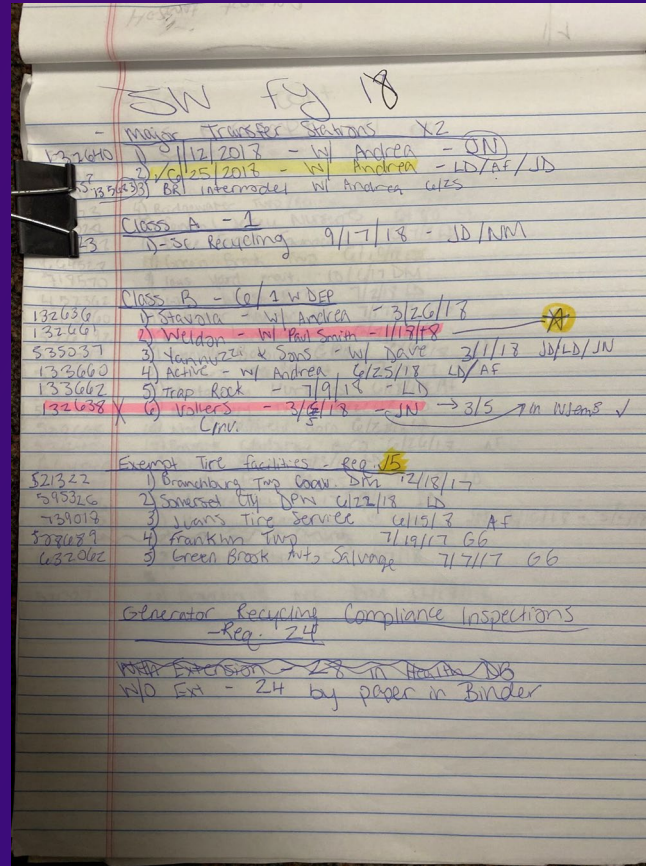 SW fy 18
- Major Transfer Stations X2
132640 1) 12/2017 - W/ Andrea - JN
2) ✓ 6/25/2018 - W/ Andrea - LD/AF/JD
3) BR Intermodel W/ Andrea 6/25
Class A - 1
1) - SC Recycling 9/17/18 - JD/NM
Class B - 6/1 w DEP
132636 1) Stavola - w/ Andrea - 3/26/18
132661 2) Weldon - w/ Paul Smith - 1/19/18
535037 3) Yannuzzi & Sons - w/ Dave 3/1/18 JD/LD/JN
133660 4) Active - w/ Andrea 6/25/18 LD/AF
133662 5) Trap Rock - 7/9/18 - LD
132638 X 6) Vollers - 3/5/18 - JN → 3/5 in NJems ✓
Exempt Tire facilities - Req. 5
521322 1) Branchburg Twp 12/18/17
595326 2) Somerset Cty DPW 6/22/18 LD
739018 3) Juans Tire Service AF
4) Franklin Twp 7/19/17 GG
632062 5) Green Brook Auto Salvage 7/7/17 GG
Generator Recycling Compliance Inspections
- Req. 24
Extension - 28 in DB
W/O Ext - 24 by paper in Binder